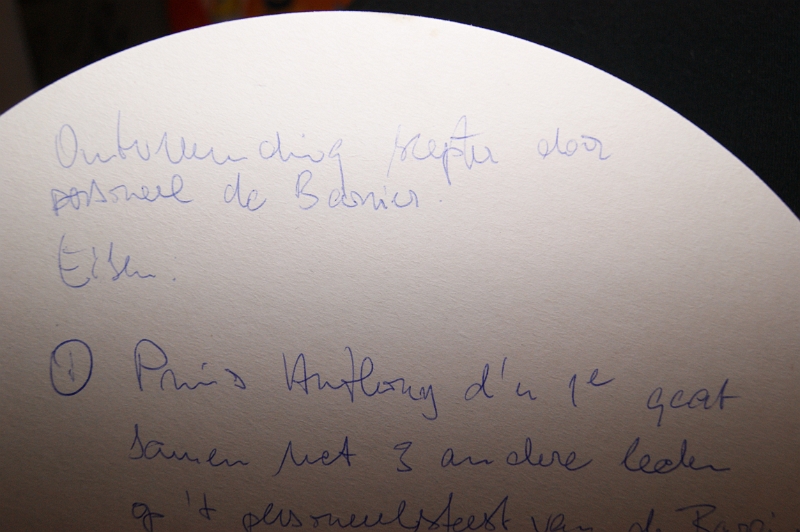 Ontvreemding scepter door
personeel de Barrier.
Eisen.
① Prins Anthony d'n 1e gaat
samen met 3 andere leden
op 't personeelsfeest van de